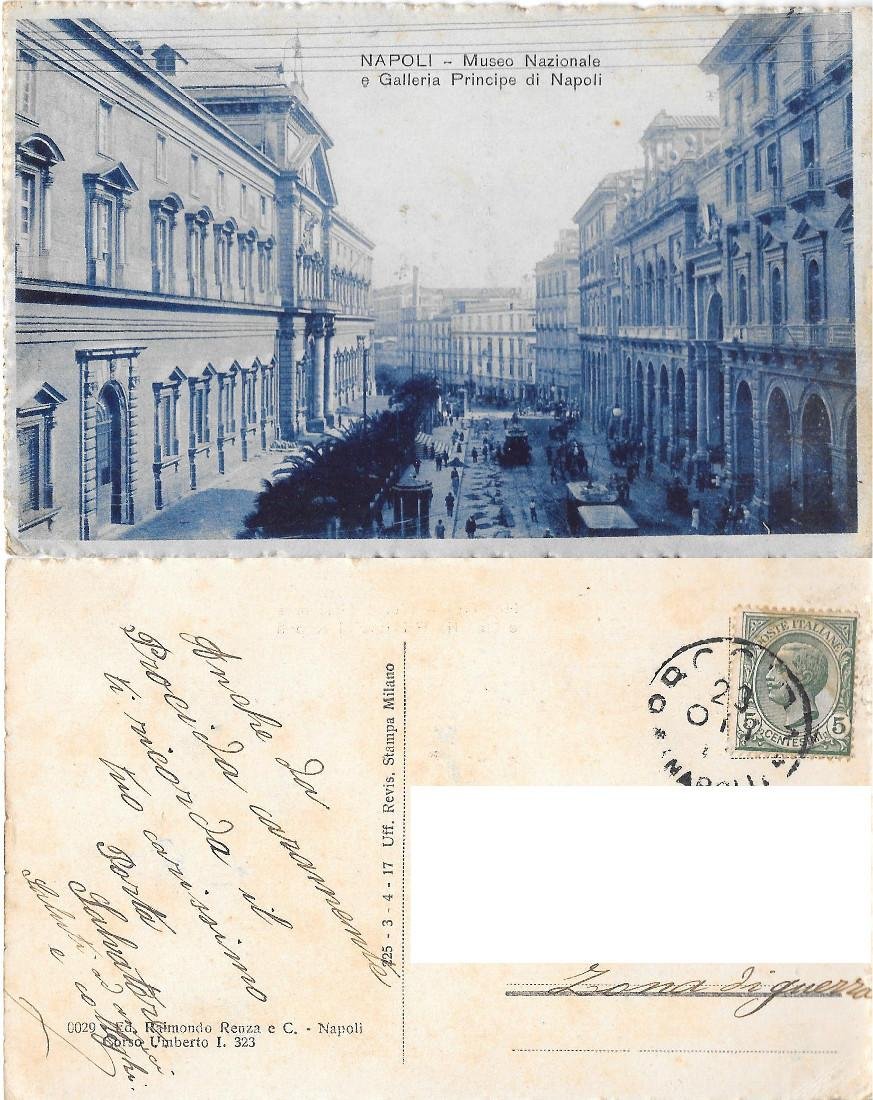 NAPOLI - Museo Nazionale
e Galleria Principe di Napoli
Anche da
Procida caramente
ti ricorda il
tuo carissimo
Porta
Salvatore
Saluti ad amici
e colleghi.
225 - 3 - 4 - 17 Uff. Revis. Stampa Milano
0029 - Ed. Raimondo Renza e C. - Napoli
Corso Umberto I. 323
POSTE ITALIANE
5 5
CENTESIMI
29
NAPOLI
Zona di guerra